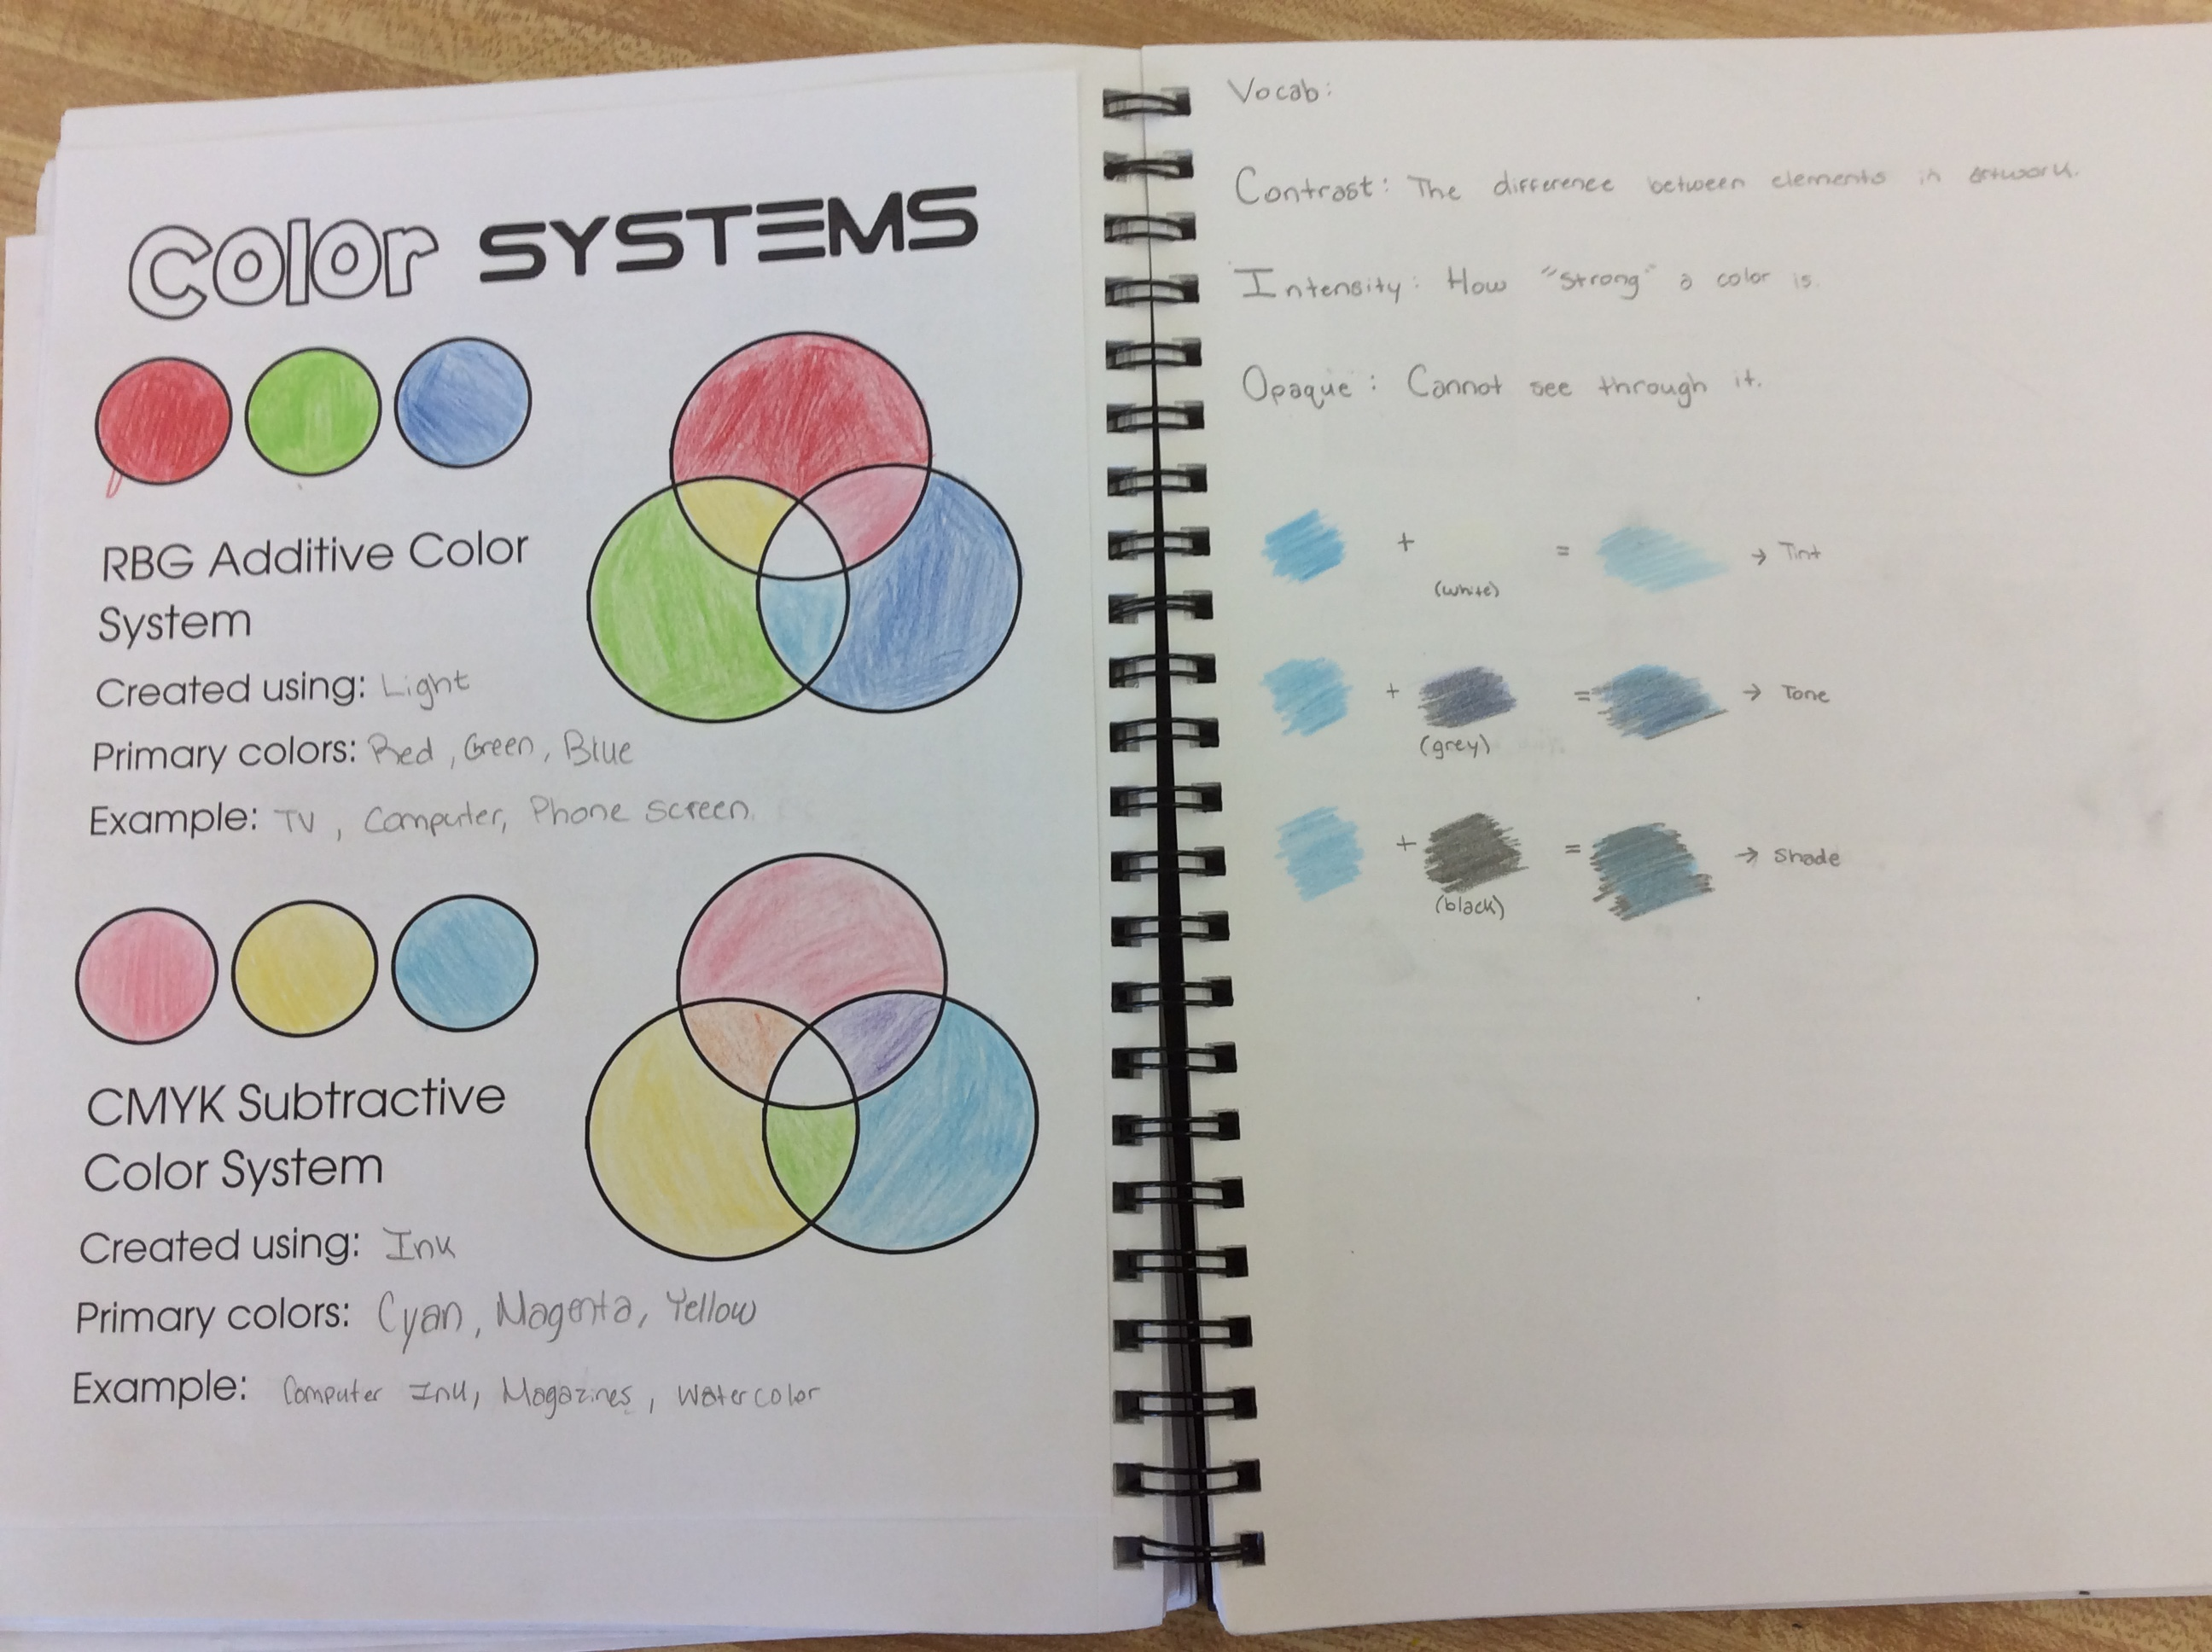 Color SYSTEMS
RBG Additive Color
System
Created using: Light
Primary colors: Red, Green, Blue
Example: TV, Computer, Phone screen
CMYK Subtractive
Color System
Created using: Ink
Primary colors: Cyan, Magenta, Yellow
Example: Computer Ink, Magazines, Watercolor
Vocab:
Contrast: The difference between elements in artwork.
Intensity: How "strong" a color is.
Opaque: Cannot see through it.
+ = → Tint
(white)
+ = → Tone
(grey)
+ = → Shade
(black)